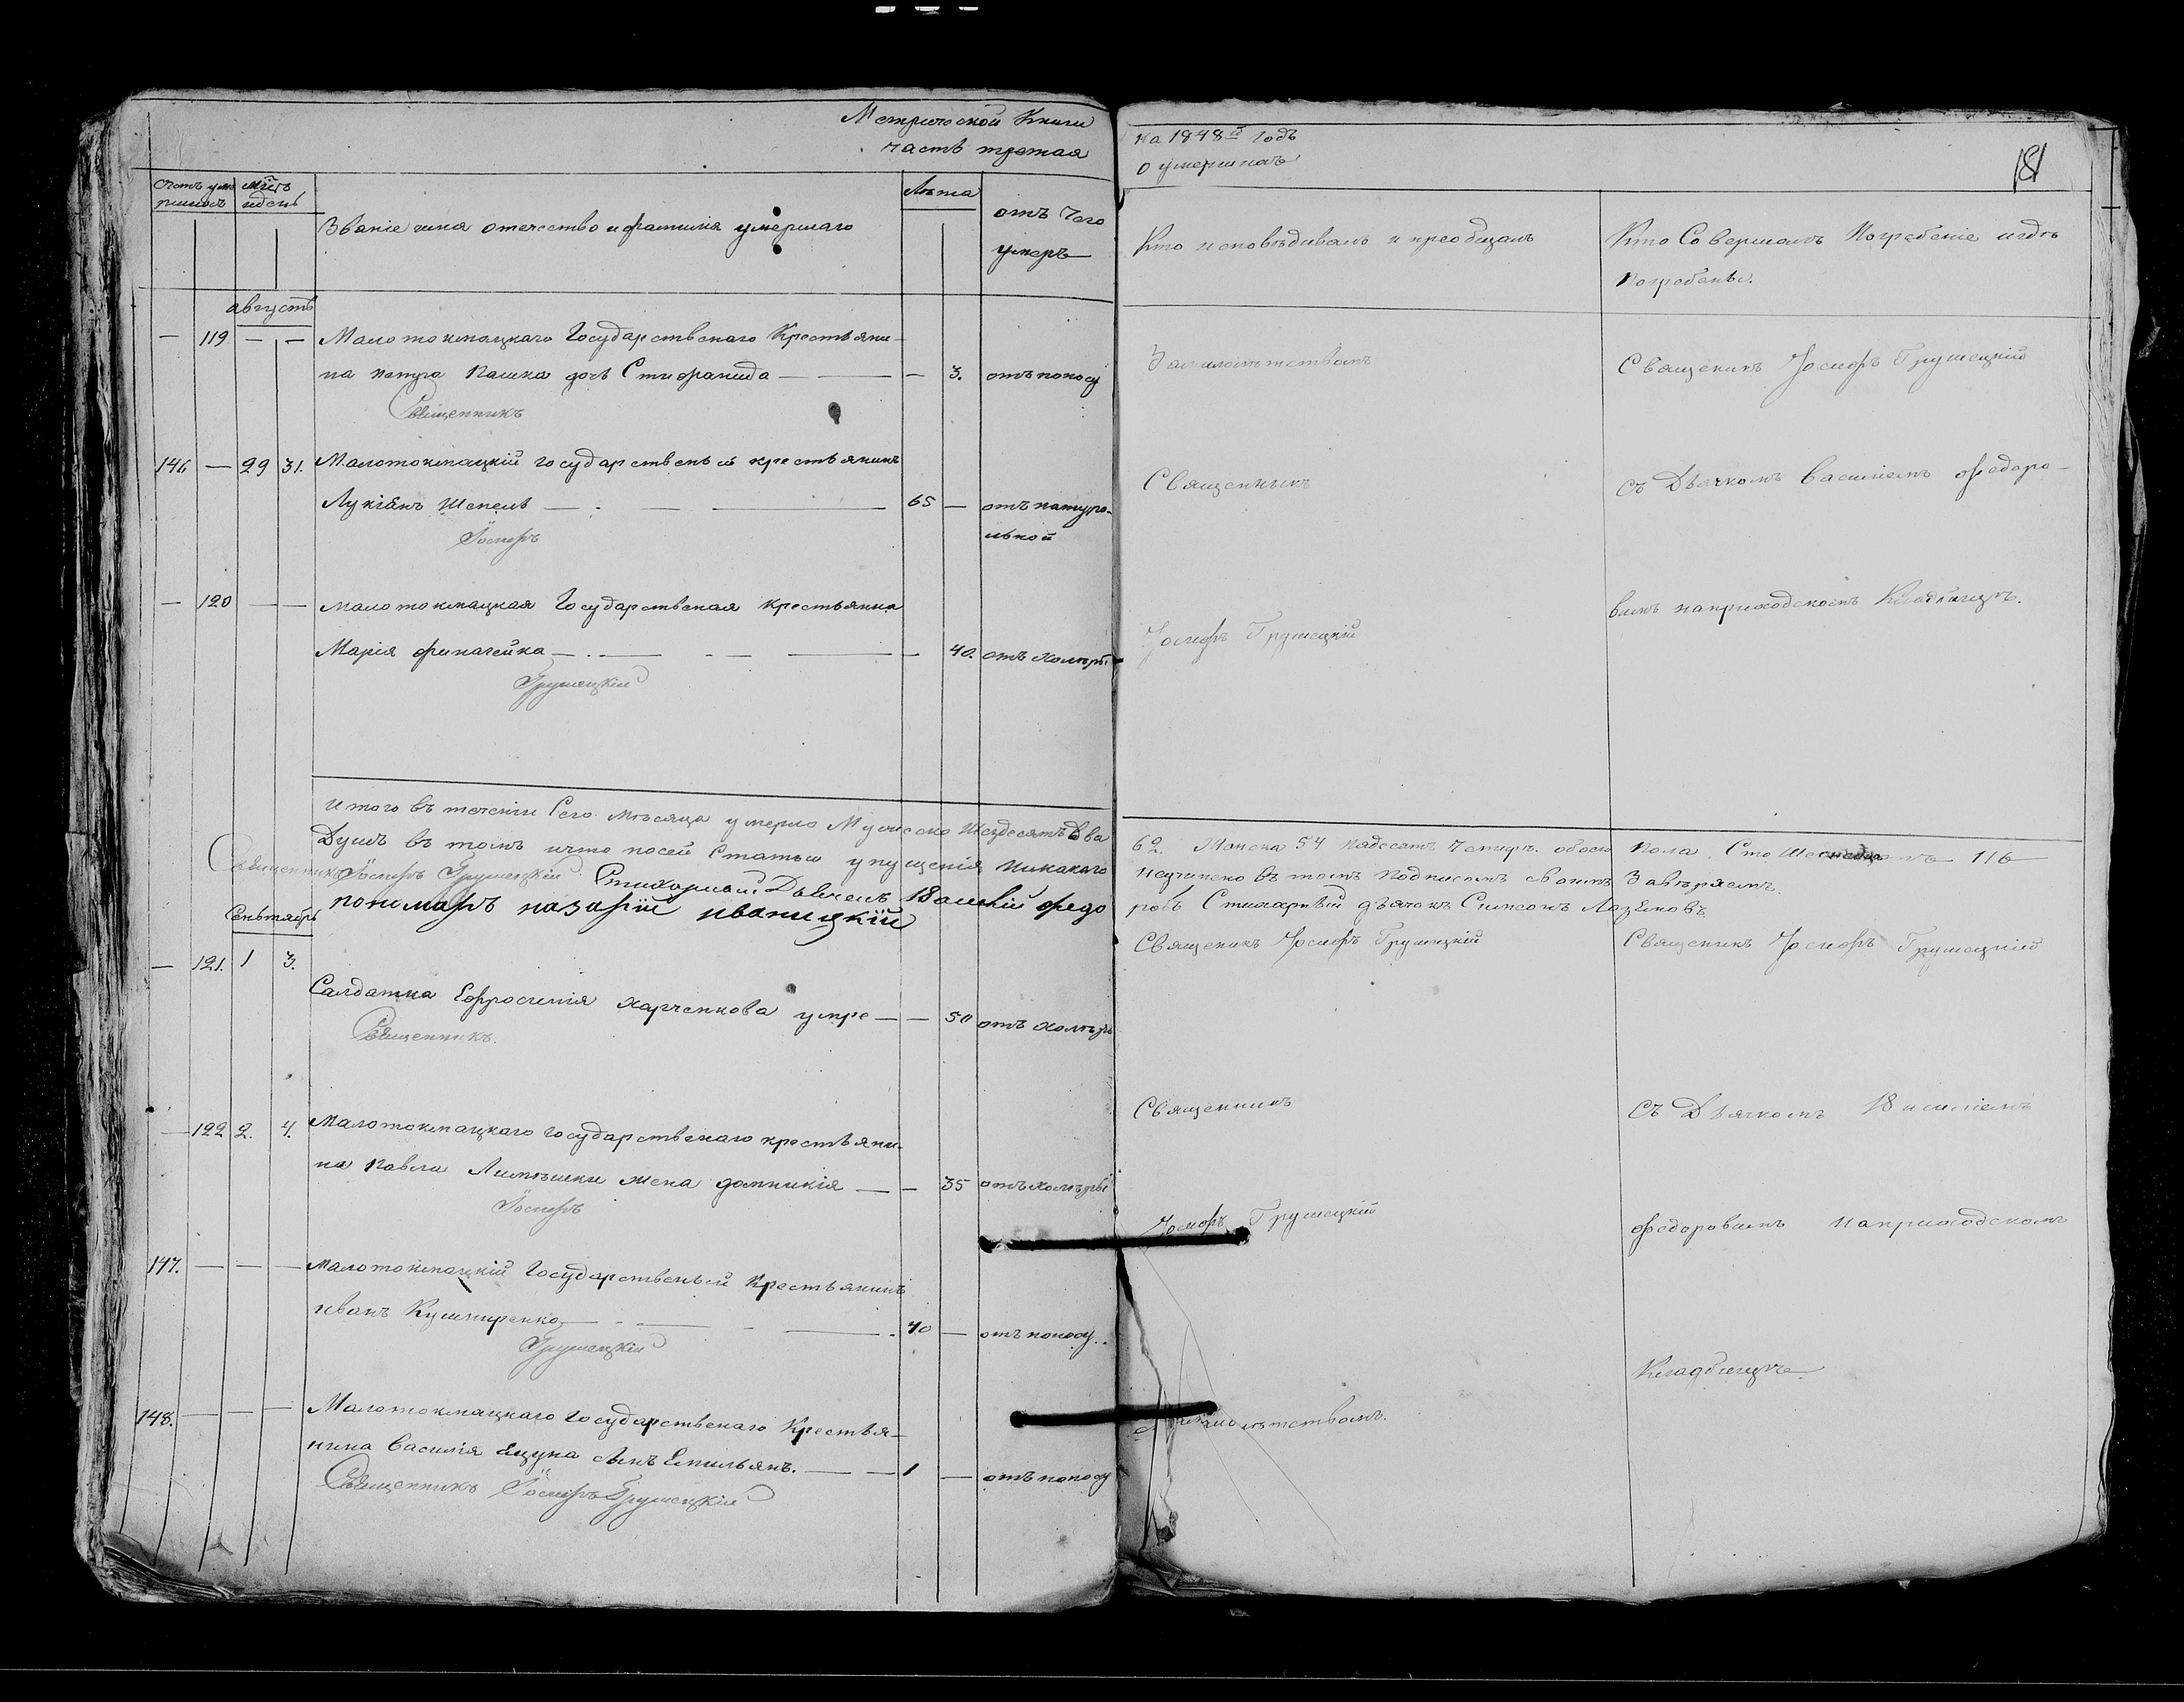 Метрической Книги
часть третая
на 1848й годъ
о умершихъ
181
счетъ уме
ршихъ
мѣсъ
и день
Званіе имя отечество и фамилія умершаго
Лѣта
отъ чего
умеръ
Кто исповѣдывалъ и преобщалъ
Кто Совершалъ Погребеніе и гдѣ
Погребены.
августъ
— 119 — — Мало токмацкаго Государственаго Крестьяни-
на Петра Пашка дочь Стифанида — — 3. отъ поносу
Священникъ
За малолѣтствомъ
Священикъ Іосифъ Грушецкій
146 — 29 31. Малотокмацкій государственый крестьянинъ
Лукіянъ Шепель — 65 — отъ натура-
льной
Іосифъ
Священникъ
съ Дьячкомъ Василіемъ Федоро-
— 120 — — малотокмацкая Государственая крестьянка
Марія финагейка — — 40. отъ холеры
Грушецкій
Іосифъ Грушецкій
вымъ на приходскомъ Кладбищѣ.
Итого въ теченіи Сего мѣсяца умерло Мужеска Шездесятъ Два
62. Женска 54 Пядесятъ Четыре. обоего Пола. Сто 116
Душъ въ томъ что посей Статьи упущенія никакаго
неучинено въ томъ Подписомъ своимъ Завѣряемъ.
Священникъ Іосифъ Грушецкій Стихарный Дьячекъ Василій Федо
ровъ Стихарный дьячокъ Симеонъ Лазановъ
пономарь назарій иваницкій
Сеньтябрь
— 121. 1 3. Салдатка Ефросинія харченкова умре — — 50 отъ холеры
Священникъ.
Священикъ Іосифъ Грушецкій
Священикъ Іосифъ Грушецкій
— 122 2. 4. Малотокмацкаго государственаго крестьяни-
на Павла жена домникія — — 35 отъ холеры
Іосифъ
Священникъ
Съ Дьячкомъ Василіемъ
147. — — — малотокмацкій Государственый Крестьянинъ
иванъ Кушниренко — 40 — отъ поносу.
Грушецкій
Іосифъ Грушецкій
Федоровымъ На приходскомъ
148. — — — Малотокмацкаго Государственаго Крестья-
нина Василія Яцуна сынъ Емильянъ. — 1 — отъ поносу
Священникъ Іосифъ Грушецкій
малолѣтствомъ.
Кладбищѣ